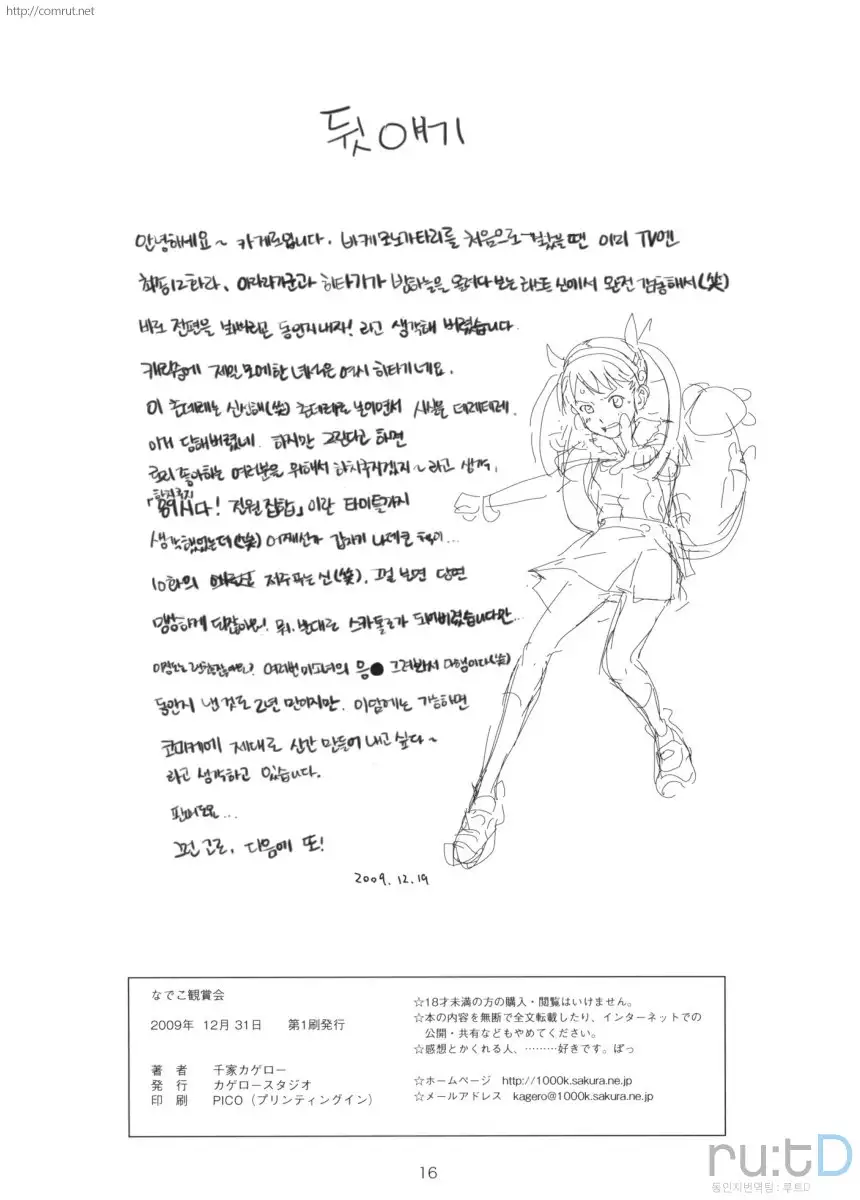 http://comrut.net
뒷얘기
안녕하세요~ 카게로입니다. 바케모노가타리를 처음으로 봤을땐 이미 TV엔
최종12화라, 아라라기군과 히타기가 밤하늘을 올려다 보는 라스트 신에서 완전 감동해서(笑)
바로 전편을 봐버리곤 동인지내자! 라고 생각해 버렸습니다.
캐릭중에 제일 모에한 녀석은 역시 히타기네요.
이 츤데레는 신선해(笑) 츤데레로 보이면서 사실은 데레데레.
이거 당해버렸네. 하지만 그린다고 하면
로리 좋아하는 여러분을 위해서 하치쿠지겠지~라고 생각,
하치쿠지
「 전원 집합」이란 타이틀까지
생각했었는데(笑) 어째선가 갑자기 나데코 책이...
10화의 저주 푸는 신(笑). 그걸 보면 당연
맹하게 되잖아요! 뭐, 스카톨로가 되어버렸습니다만...
여러번 미소녀의 응● 그려봐서 다행이다(笑)
동인지 낸 것도 2년 만이지만, 이담에는 가능하면
코미케에 제대로 신간 만들어 내고 싶다~
라고 생각하고 있습니다.
그런 고로, 다음에 또!
2009.12.19
なでこ観賞会
2009年 12月 31日 第1刷発行
著 者 千家カゲロー
発 行 カゲロースタジオ
印 刷 PICO（プリンティングイン）
☆18才未満の方の購入・閲覧はいけません。
☆本の内容を無断で全文転載したり、インターネットでの
公開・共有などもやめてください。
☆感想とかくれる人、………好きです。ぽっ
☆ホームページ http://1000k.sakura.ne.jp
☆メールアドレス kagero@1000k.sakura.ne.jp
16
ru:tD
동인지번역팀 : 루트D